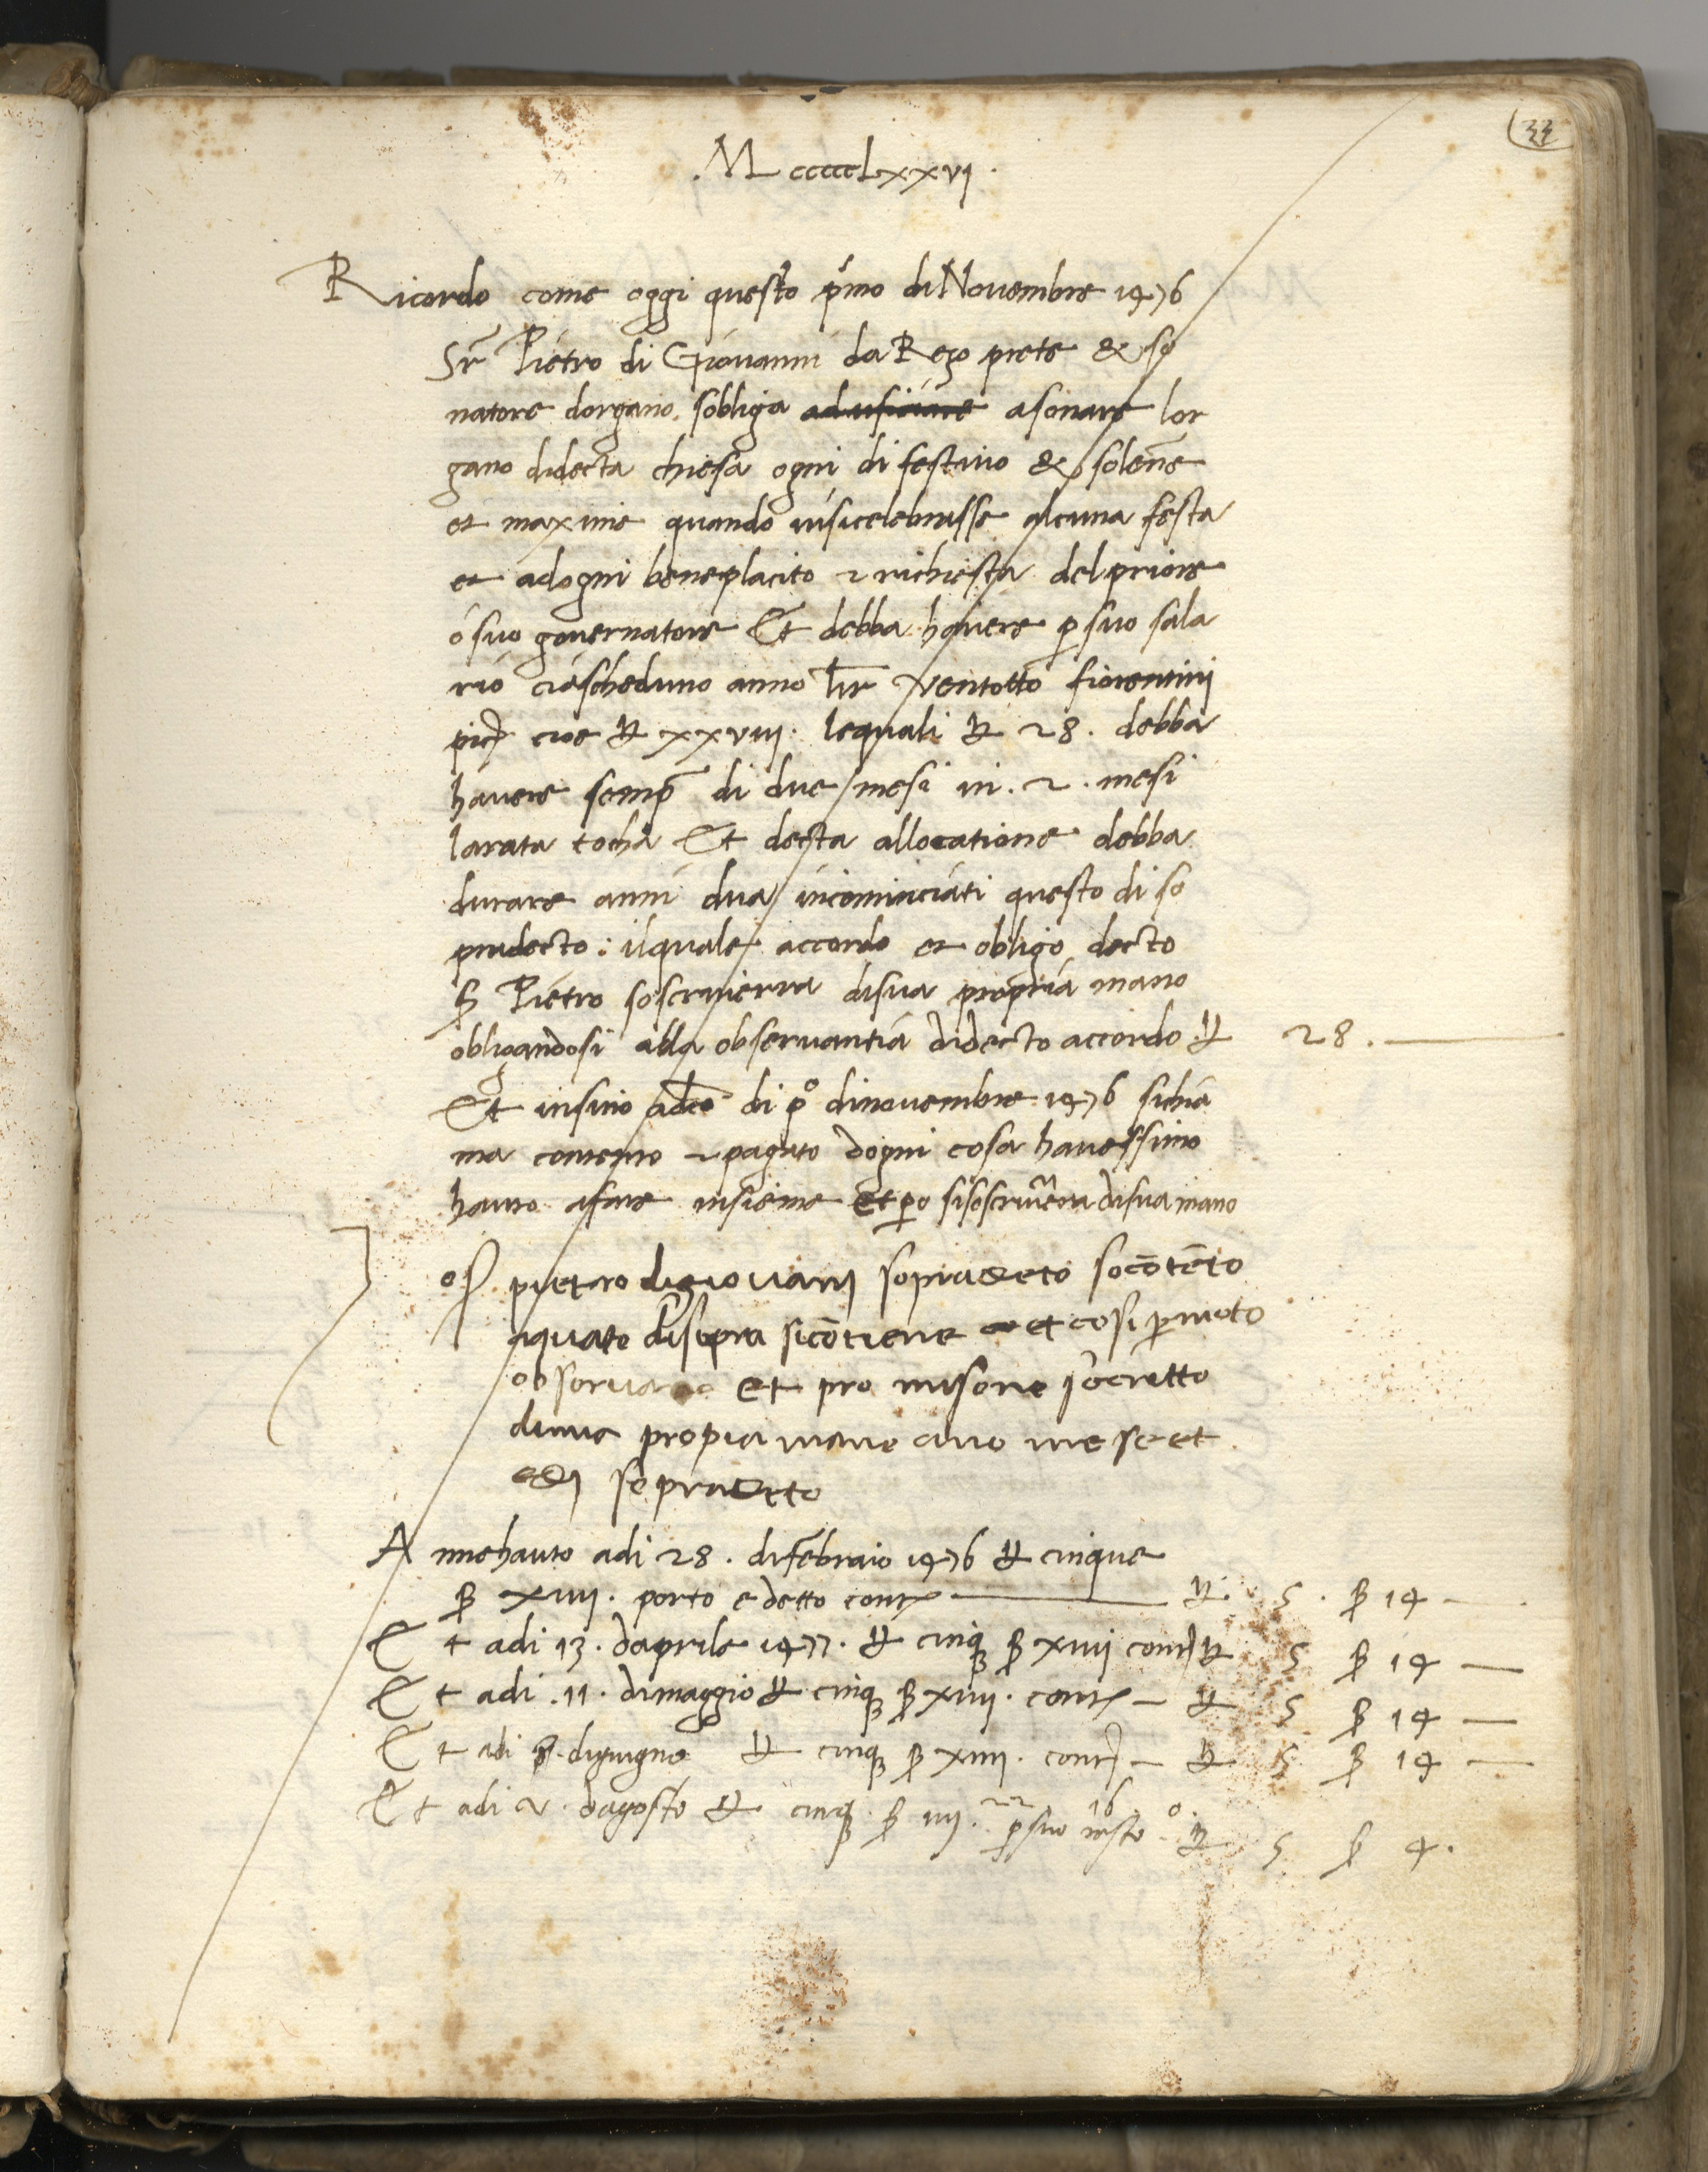 33
.McccccLxxvj.
Ricordo come oggi questo p̄mo di Novembre 1476
Sr̄ Pietro di Giovanni da Rezo prete & so
natore dorgano. sobliga a sonare lor
gano didecta chiesa ogni di festivo & solen̄e
et maxime quando visicelebrasse alcuna festa
et adogni beneplacito 2 richiesta del priore
o suo governatore Et debba havere ꝑ suo sala
rio ciascheduno anno ventotto fiorentini
cioe ℔ xxviij. lequali ℔ 28. debba
havere semp̄ di due mesi in .2. mesi
larata tocha Et decta allocatione debba
durare anni dua incominciati questo di so
pradecto: ilquale accordo et obligo decto
S Pietro soscriverra disua propria mano
obligandosi alla observantia didecto accordo ℔ 28.
Et insino adc̄o di pº dinovembre 1476 sichia
ma contento 2 pagato dogni cosa havessimo
hauto afare insieme Et ꝑo sisoscriverra disua mano
pietro digiovanj sopradeto socōtēto
aquato disopra sicōtiene et cosi ꝑmeto
observare et pro
propia mano ano mese et
edj sopradetto
Annehauto adi 28. difebraio 1476 ℔ cinque
ß xiiij. porto e detto conti ℔ 5. ß 14
Et adi 13. daprile 1477. ℔ cinqȝ ß xiiij conti ℔ 5 ß 14
Et adi .11. dimaggio ℔ cinqȝ ß xiiij. conti ℔ 5 ß 14
Et adi 8. digiugno ℔ cinqȝ ß xiiij. conti ℔ 5 ß 14
Et adi 2. dagosto ℔ cinqȝ ß iiij. ꝑsuo resto ℔ 5 ß 4.